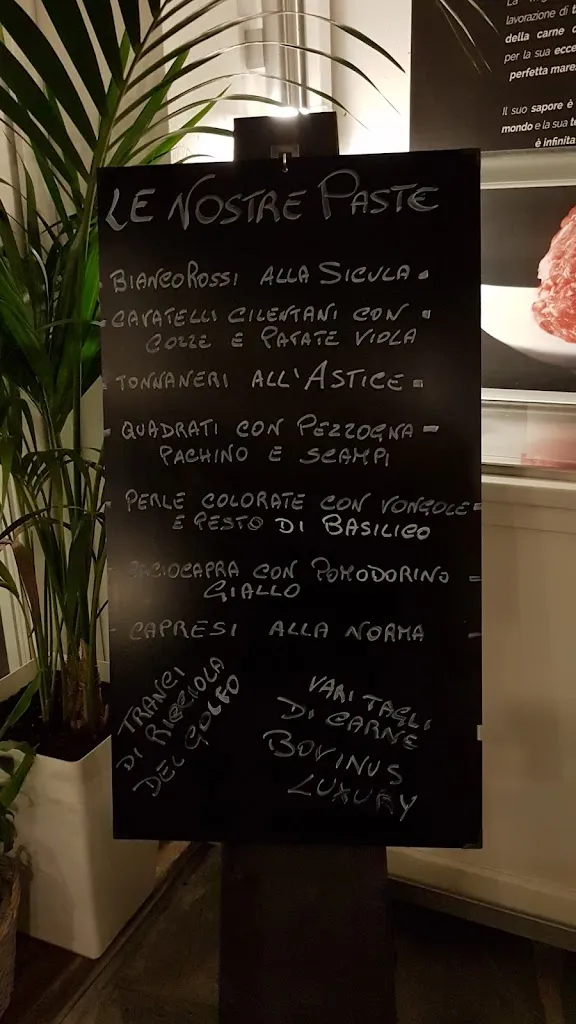 lavorazione di
della carne
per la sua ecce
perfetta mare
Il suo sapore è
mondo e la sua
è infinita
LE NOSTRE PASTE
BIANCOROSSI ALLA SICULA
CAVATELLI CILENTANI CON
COZZE E PATATE VIOLA
TONNANERI ALL'ASTICE
QUADRATI CON PEZZOGNA
PACHINO E SCAMPI
PERLE COLORATE CON VONGOLE
E PESTO DI BASILICO
CON POMODORINO
GIALLO
CAPRESI ALLA NORMA
TRANCI
DI RICCIOLA
DEL GOLFO
VARI TAGLI
DI CARNE
BOVINUS
LUXURY